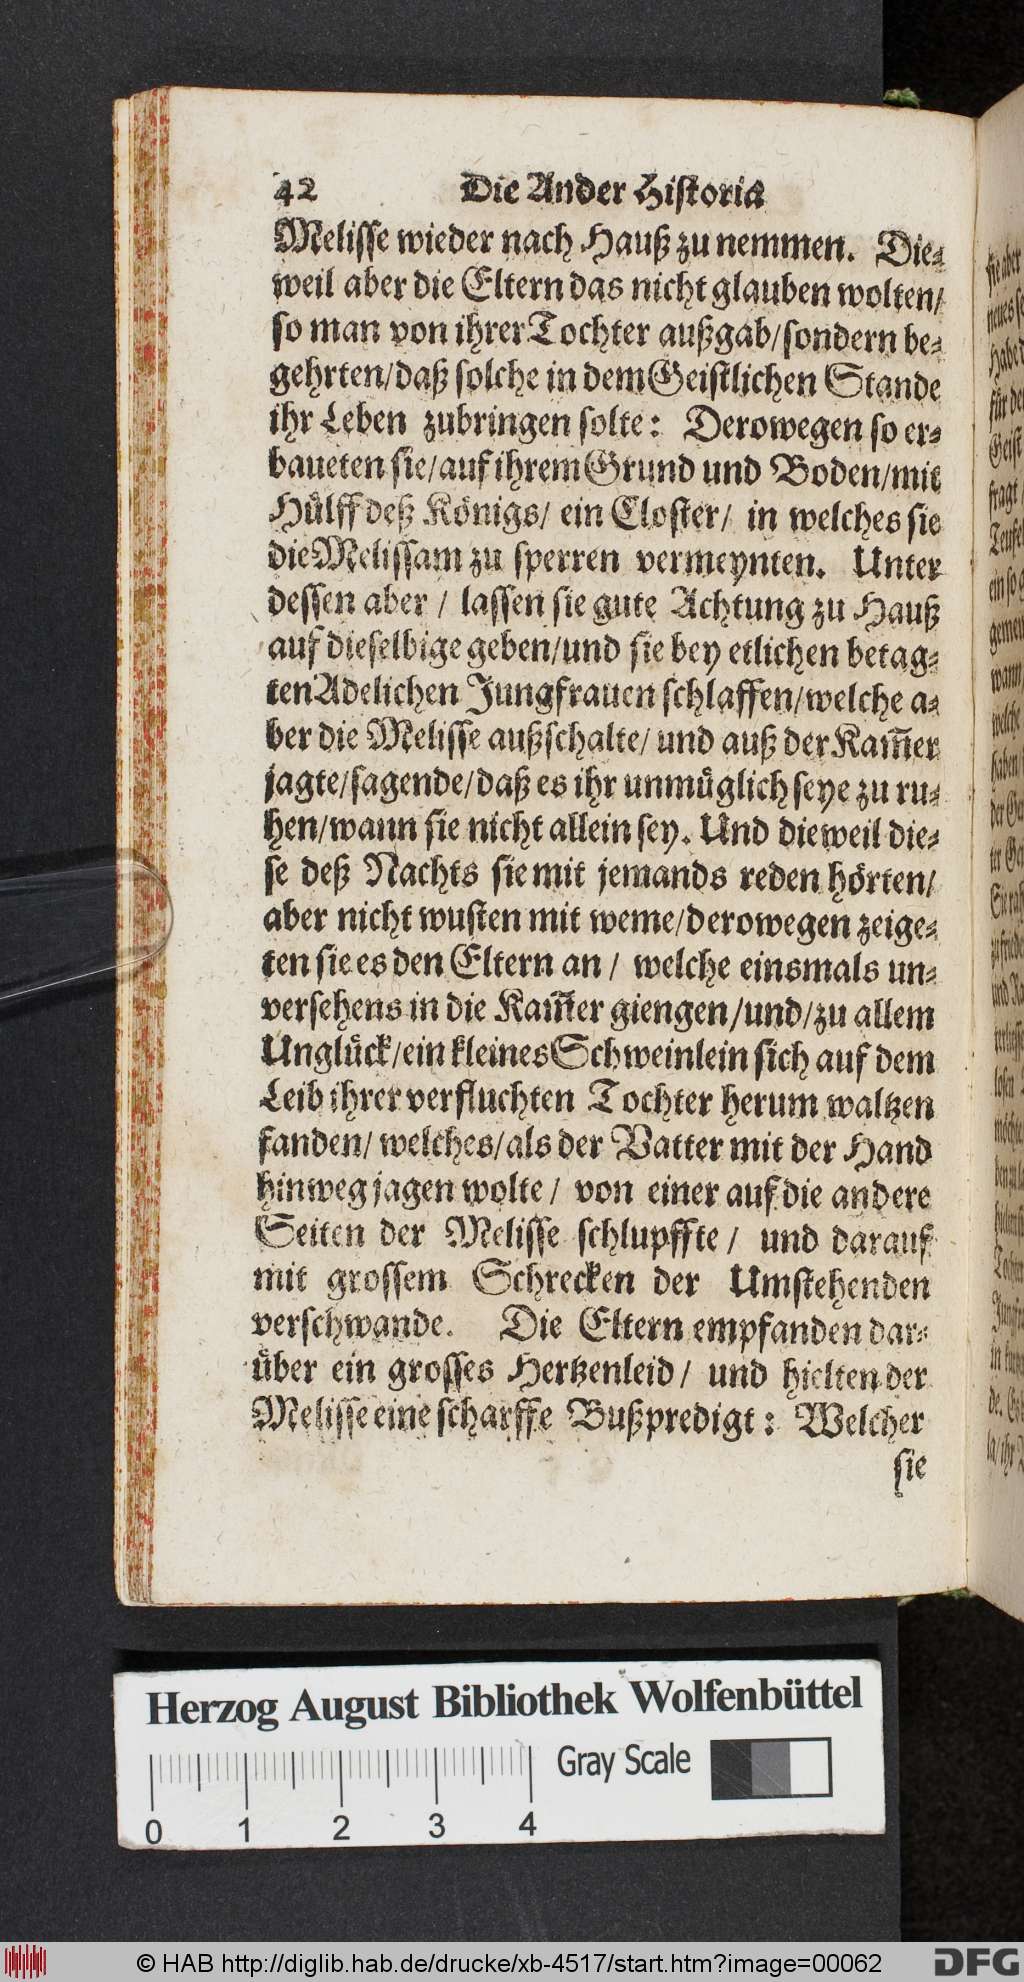 42 Die Ander Historia
Melisse wieder nach Hauß zu nemmen. Die-
weil aber die Eltern das nicht glauben wolten/
so man von ihrer Tochter außgab/sondern be-
gehrten/daß solche in dem Geistlichen Stande
ihr Leben zubringen solte: Derowegen so er-
baueten sie/auf ihrem Grund und Boden/mit
Hülff deß Königs/ ein Closter/ in welches sie
die Melissam zu sperren vermeynten. Unter
dessen aber / lassen sie gute Achtung zu Hauß
auf dieselbige geben/und sie bey etlichen betag-
ten Adelichen Jungfrauen schlaffen/welche a-
ber die Melisse außschalte/ und auß der Kam̃er
jagte/sagende/daß es ihr unmüglich seye zu ru-
hen/wann sie nicht allein sey. Und dieweil die-
se deß Nachts sie mit jemands reden hörten/
aber nicht wusten mit weme/derowegen zeige-
ten sie es den Eltern an / welche einsmals un-
versehens in die Kam̃er giengen/und/zu allem
Unglück/ein kleines Schweinlein sich auf dem
Leib ihrer verfluchten Tochter herum waltzen
fanden/ welches/als der Vatter mit der Hand
hinweg jagen wolte / von einer auf die andere
Seiten der Melisse schlupffte / und darauf
mit grossem Schrecken der Umstehenden
verschwande. Die Eltern empfanden dar-
über ein grosses Hertzenleid / und hielten der
Melisse eine scharffe Bußpredigt: Welcher
sie
Herzog August Bibliothek Wolfenbüttel
Gray Scale
0 1 2 3 4
© HAB http://diglib.hab.de/drucke/xb-4517/start.htm?image=00062
DFG